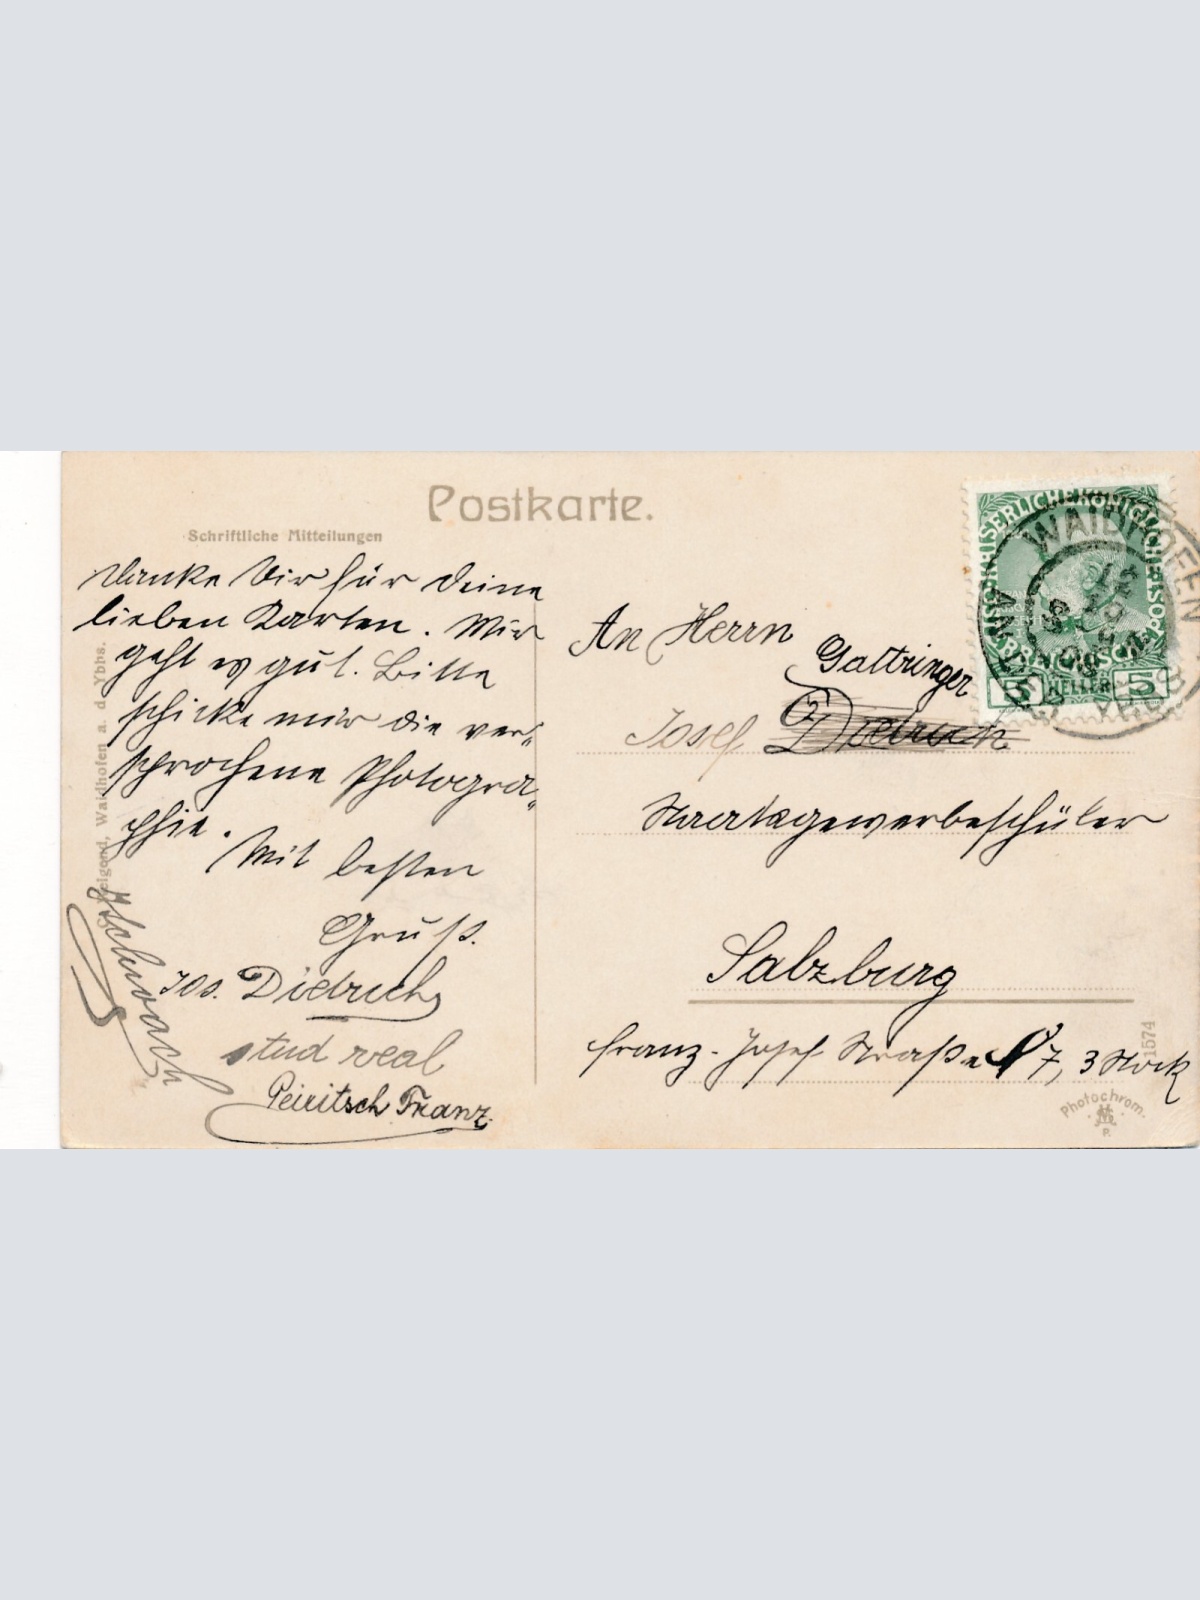 Postkarte.
Schriftliche Mitteilungen
Danke Dir für Deine
lieben Karten. Mir
geht es gut. Bitte
schicke mir die ver„
sprochene Photogra„
phie.
Mit besten
Gruß.
Jos. Dietrich
stud real
Peiritsch Franz
Waidhofen a. d. Ybbs.
An Herrn
Gattringer
Josef Dietrich
Staatsgewerbeschüler
Salzburg
Franz-Josef Straße 7, 3 Stock
5 HELLER 5
WAIDHOFEN
1574
Photochrom.
P.